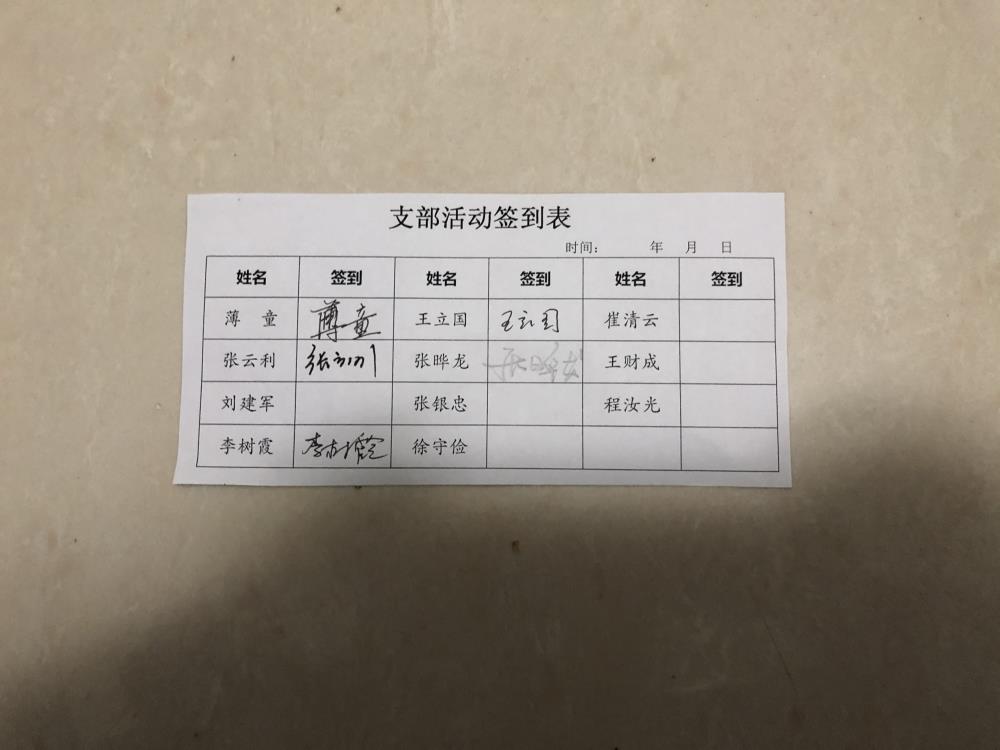 支部活动签到表
时间： 年 月 日
姓名 签到 姓名 签到 姓名 签到
薄 童 薄童 王立国 王立国 崔清云
张云利 张云利 张晔龙 张晔龙 王财成
刘建军 张银忠 程汝光
李树霞 李树霞 徐守俭